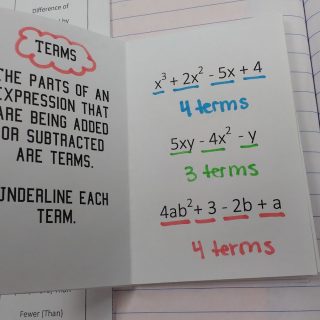 Difference of
TERMS
THE PARTS OF AN
EXPRESSION THAT
ARE BEING ADDED
OR SUBTRACTED
ARE TERMS.
UNDERLINE EACH
TERM.
x³ + 2x² - 5x + 4
4 terms
5xy - 4x² - y
3 terms
4ab² + 3 - 2b + a
4 terms
Fewer (Than)